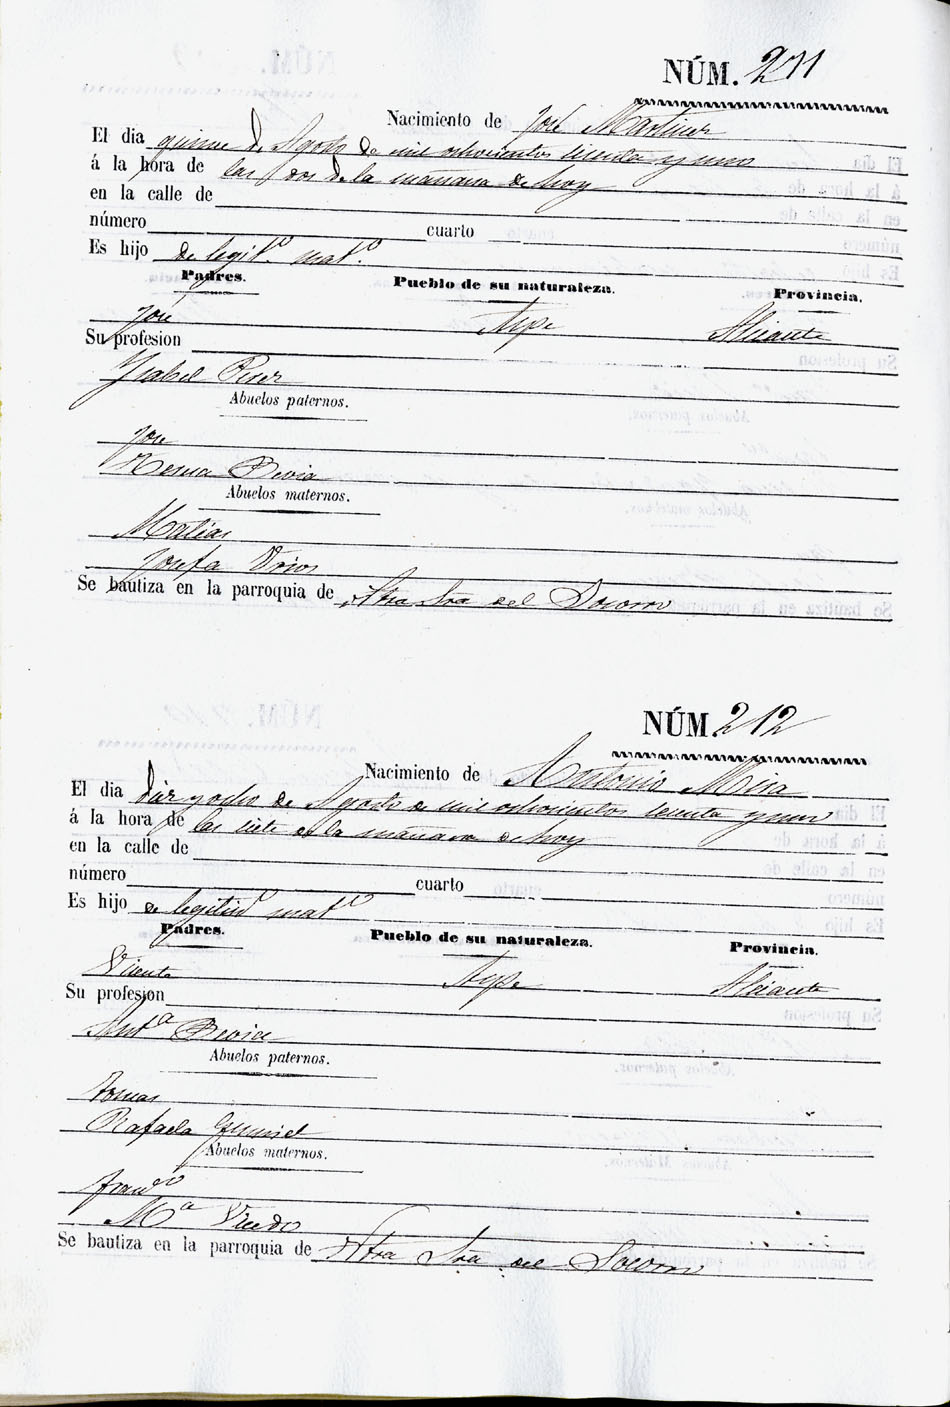 NÚM. 211
Nacimiento de José Martinez
El dia quince de Agosto de mil ochocientos sesenta y uno
á la hora de las dos de la mañana de hoy
en la calle de
número cuarto
Es hijo de legit.º mat.º
Padres. Pueblo de su naturaleza. Provincia.
José Aspe Alicante
Su profesion
Ysabel Perez
Abuelos paternos.
José
Teresa Bevia
Abuelos maternos.
Matias
Josefa Urios
Se bautiza en la parroquia de Ntra Sra del Socorro
NÚM. 212
Nacimiento de Antonio Mira
El dia diez y ocho de Agosto de mil ochocientos sesenta y uno
á la hora de las siete de la mañana de hoy
en la calle de
número cuarto
Es hijo de legitimº matº
Padres. Pueblo de su naturaleza. Provincia.
Vicente Aspe Alicante
Su profesion
Antª Bevia
Abuelos paternos.
Tomas
Rafaela
Abuelos maternos.
Franco
Mª Vicedo
Se bautiza en la parroquia de Ntra Sra del Socorro